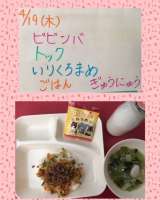 4/19(木)
ビビンバ
トック
いりくろまめ
ごはん ぎゅうにゅう